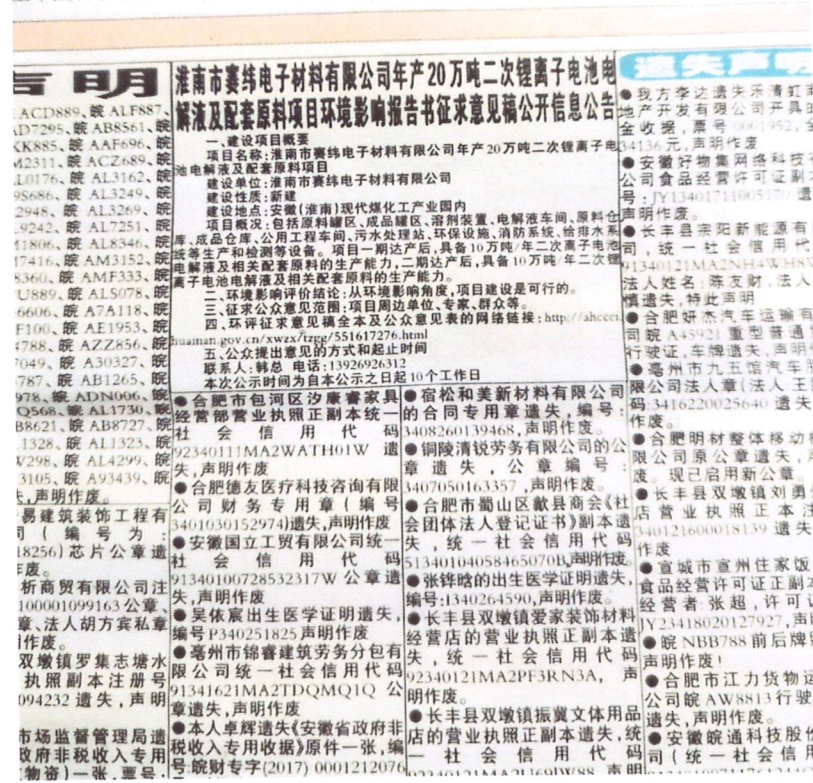 声明
ACD889、皖 ALF887、
AD7295、皖 AB8561、皖
KK885、皖 AAF696、皖
M2311、皖 ACZ689、皖
L0176、皖 AL3162、皖
9S686、皖 AL3249、皖
2948、皖 AL3269、皖
9242、皖 AL7251、皖
M1806、皖 AL8346、皖
17416、皖 AM3152、皖
8360、皖 AMF333、皖
U889、皖 AL5078、皖
6606、皖 A7A118、皖
F100、皖 AE1953、皖
4788、皖 AZZ856、皖
7049、皖 A30327、皖
787、皖 AB1265、皖
978、皖 ADN006、皖
Q568、皖 AL1730、皖
B8621、皖 AB8727、皖
1328、皖 AL1323、皖
V298、皖 AL4299、皖
3105、皖 A93439、皖
声明作废。
易建筑装饰工程有
司（编号为：
18256)芯片公章遗
作废。
析商贸有限公司注
100001099163公章、
章、法人胡方宾私章
明作废。
双墩镇罗集志塘水
执照副本注册号
094232 遗失，声明
市场监督管理局遗
政府非税收入专用
物资)一张，票号：
淮南市赛纬电子材料有限公司年产20万吨二次锂离子电池电
解液及配套原料项目环境影响报告书征求意见稿公开信息公告
一、建设项目概要
项目名称：淮南市赛纬电子材料有限公司年产20万吨二次锂离子电
池电解液及配套原料项目
建设单位：淮南市赛纬电子材料有限公司
建设性质：新建
建设地点：安徽(淮南)现代煤化工产业园内
项目概况：包括原料罐区、成品罐区、溶剂装置、电解液车间、原料仓
库、成品仓库、公用工程车间、污水处理站、环保设施、消防系统、给排水系
统等生产和检测等设备。项目一期达产后，具备10万吨/年二次离子电池
电解液及相关配套原料的生产能力，二期达产后，具备10万吨/年二次锂
离子电池电解液及相关配套原料的生产能力。
二、环境影响评价结论：从环境影响角度，项目建设是可行的。
三、征求公众意见范围：项目周边单位、专家、群众等。
四、环评征求意见稿全本及公众意见表的网络链接：http://ahcci.
huainan.gov.cn/xwzx/tzgg/551617276.html
五、公众提出意见的方式和起止时间
联系人：韩总 电话：13926926312
本次公示时间为自本公示之日起10个工作日
●合肥市包河区汐康睿家具
经营部营业执照正副本统一
社会信用代码
92340111MA2WATH01W 遗
失，声明作废
●合肥德友医疗科技咨询有限
公司财务专用章（编号
3401030152974)遗失，声明作废
●安徽国立工贸有限公司统一
社会信用代码
91340100728532317W 公章遗
失，声明作废
●吴依宸出生医学证明遗失，
编号P340251825声明作废
●亳州市锦睿建筑劳务分包有
限公司统一社会信用代码
91341621MA2TDQMQ1Q 公
章遗失，声明作废
●本人卓辉遗失《安徽省政府非
税收入专用收据》原件一张，编
号皖财专字(2017) 0001212076
●宿松和美新材料有限公司
的合同专用章遗失，编号：
3408260139468，声明作废。
●铜陵清锐劳务有限公司的公
章遗失，公章编号：
3407050163357，声明作废。
●合肥市蜀山区歙县商会《社
会团体法人登记证书》副本遗
失，统一社会信用代码
51340104058465070B，声明作废。
●张铧晗的出生医学证明遗失，
编号：I340264590，声明作废。
●长丰县双墩镇爱家装饰材料
经营店的营业执照正副本遗
失，统一社会信用代码
92340121MA2PF3RN3A，声
明作废。
●长丰县双墩镇振翼文体用品
店的营业执照正副本遗失，统
一社会信用代码
92340121MA2U69IW88 声明
遗失声明
●我方李达遗失乐清虹
地产开发有限公司开具的
金收据，票号 0061952，金
34136元，声明作废
●安徽好物集网络科技有
公司食品经营许可证副本
号：JY13401711005170 遗
声明作废。
●长丰县宗阳新能源有
司，统一社会信用代
91340121MA2NH4WH8W
法人姓名：陈友财，法人
慎遗失，特此声明
●合肥妍杰汽车运输有
司皖 A45921 重型普通
行驶证，车牌遗失，声明
●亳州市九五馆汽车服
限公司法人章(法人王
码：3416220025640 遗失
作废。
●合肥明材整体移动
限公司原公章遗失，声
废。现已启用新公章。
●长丰县双墩镇刘勇
店营业执照正本注
340121600018139 遗失
作废
●宣城市宣州住家饭
食品经营许可证正副本
经营者：张超，许可证
JY23418020127927，声
●皖 NBB788 前后牌照
声明作废！
●合肥市江力货物运
公司皖 AW8813 行驶
遗失，声明作废。
●安徽皖通科技股份
司(统一社会信用